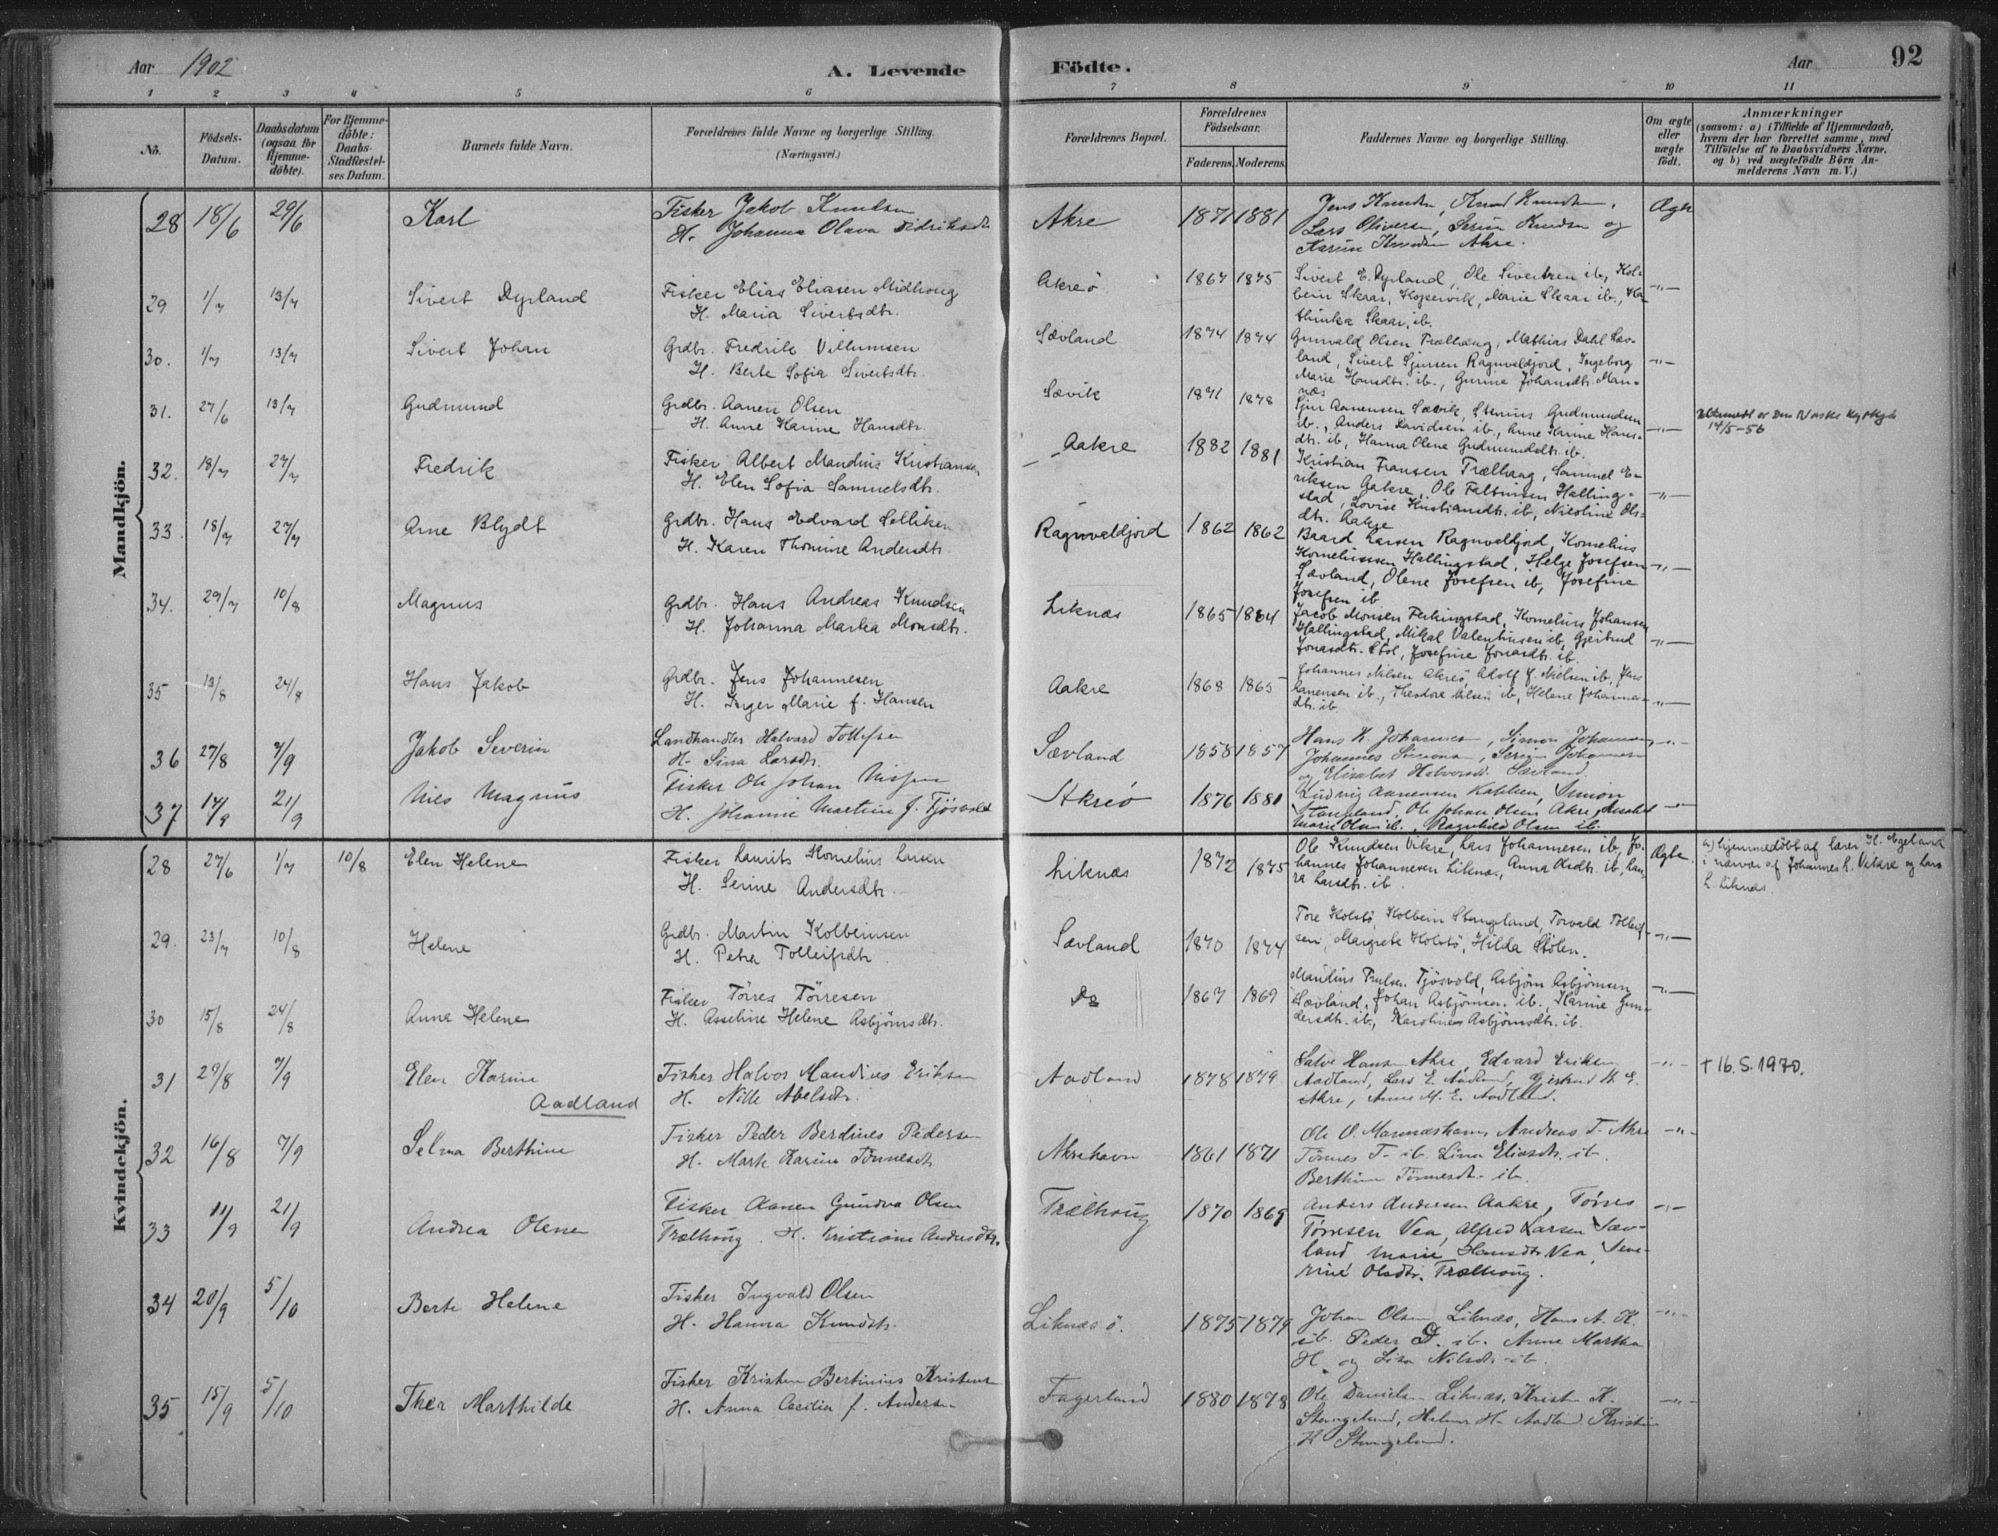 Aar 1902
A. Levende Födte.
Aar 92
1 2 3 4 5 6 7 8 9 10 11
No.
Födsels-Datum.
Daabsdatum (ogsaa for Hjemme-döbte).
For Hjemme-döbte: Daabs-Stadfæstel-ses Datum.
Barnets fulde Navn.
Forældrenes fulde Navne og borgerlige Stilling.
(Næringsvei.)
Forældrenes Bopæl.
Forældrenes Födselsaar.
Faderens. Moderens.
Faddernes Navne og borgerlige Stilling.
Om ægte eller uægte födt.
Anmærkninger
(saasom: a) i Tilfælde af Hjemmedaab,
hvem der har forrettet samme, med
Tilföielse af to Daabsvidners Navne,
og b) ved uægtefödte Börn An-
melderens Navn m. V.)
Mandkjön.
28 18/6 29/6 Karl Fisker Jakob Knudsen Akre 1871 1881 Jens Knudsen, Knud Knudsen, Ægte
H. Johanna Olava Lars Oliversen, Serine Knudsen og
Karine Knudsen Akre.
29 1/7 13/7 Sivert Dyrland Fisker Elias Eliasen Midhoug Akreö 1867 1875 Sivert E. Dyrland, Ole Sivertsen ib., Kol- -"-
H. Maria Sivertsdtr. bein Skaar, Kopervik, Marie Skaar ib., Ka-
thinka Skaar, ib.
30. 1/7 13/7 Sivert Johan Grdbr. Fredrik Villumsen Sævland 1874 1874 Gunvald Olsen Trælhaug, Mathias Dahl Sæv- -"-
H. Berte Sofia Sivertsdtr. land, Sivert Sjursen Ragnvaldjord, Ingeborg
Marie Hansdtr. ib., Gurine Johansdtr. Man-
næs
31. 27/6 13/7 Gudmund Grdbr. Aanen Olsen Sævik 1871 1878 Sjur Aanensen Sævik, Stenius Gudmundsen -"-
H. Anne Karine Hansdtr. ib., Anders Davidsen ib., Anne Karine Hans-
dtr. ib, Hanna Olene Gudmundsdtr. ib.
Utmeldt av Den Norske Kyrkja
14/5-56
32. 18/7 27/7 Fredrik Fisker Albert Mandius Kristiansen Aakre 1882 1881 Kristian Fransen Trælhaug, Samuel E- -"-
H. Elen Sofia Samuelsdtr. riksen Aakre, Ole Halling-
stad, Lovise Kristiansdtr. ib, Nicoline Ols-
dtr. Aakre
33 18/7 27/7 Arne Blydt Grdbr. Hans Edvard Selliken Ragnvaldjord 1862 1862 Baard Larsen Ragnvaldjord, Kornelius -"-
H. Karen Thomine Andersdtr. Korneliussen Hallingstad, Helge Josefsen
Sævland, Olene Josefsen ib, Josefine
Josefsen ib
34. 29/7 10/8 Magnus Grdbr. Hans Andreas Knudsen Liknæs 1865 1864 Jacob Monsen Ferkingstad, Kornelius Johansen -"-
H. Johanna Marta Monsdtr. Hallingstad, Mikal Valentinsen ib, Gjertrud
Jonasdtr. Stol, Josefine Jonasdtr. ib.
35 13/8 24/8 Hans Jakob Grdbr. Jens Johannesen Aakre 1868 1865 Johannes Nilsen Akreö, Adolf J. Nielsen ib, Jens -"-
H. Inger Marie f. Hansen Aanensen ib., Theodore Nilsen ib, Helene Johannes-
dtr. ib.
36 27/8 7/9 Jakob Severin Landhandler Halvard Tollefsen Sævland 1858 1857 Hans H. Johannesen, Simon Johannesen -"-
H. Sina Larsdtr. Johannes Simonsen, Serine Johannesen
og Elisabet Halvorsdtr. Sævland.
37 14/9 21/9 Nils Magnus Fisker Ole Johan Nilsen Akreö 1876 1881 Ludvig Aanensen Simon -"-
H. Johanne Martine f. Tjösvold Stangeland, Ole Johan Olsen Akre,
Marie Olsen ib., Ragnhild Olsen ib.
Kvindekjön.
28 27/6 1/7 10/8 Elen Helene Fisker Laurits Kornelius Larsen Liknæs 1872 1875 Ole Knudsen Vikre, Lars Johannesen ib, Jo- Ægte
H. Serine Andersdtr. hannes Johannesen Liknæs, Anna Larsdtr. ib, Lau-
ra Larsdtr. ib.
a) hjemmedöbt af lærer H. Aageland
i nærvær af Johannes L. Vikre og Lars
L. Liknæs.
29. 23/7 10/8 Helene Grdbr. Martin Kolbeinsen Sævland 1870 1874 Tore Holstö, Kolbein Stangeland, Torvald Tolleif- -"-
H. Petra Tolleifsdtr. sen, Margrete Holstö, Hilda Stölen.
30 15/8 24/8 Anna Helene Fisker Törres Törresen Do 1867 1869 Mandius Paulsen Tjösvold, Asbjörn Asbjörnsen -"-
H. Asseline Helene Asbjörnsdtr. Sævland, Johan Asbjörnsen ib., Karine Gun-
dersdtr. ib., Karoline Asbjörnsdtr. ib.
31 29/8 7/9 Elen Karine Fisker Halvor Mandius Eriksen Aadland 1878 1879 Salve Hansen Akre, Edvard Eriksen -"- † 16.5.1970.
Aadland H. Nille Abelsdtr. Aadland, Lars E. Aadland, Gjertrud H. E.
Akre, Anne M. E. Aadland.
32 16/8 7/9 Selma Berthine Fisker Peder Berdines Pedersen Akrehavn 1861 1871 Ole O. Mannæshavn, Andreas T. Akre -"-
H. Marte Karine Tönnesdtr. Tönnes T. ib. Lina Eliasdtr. ib.
Berthine Tönnesdtr. ib.
33 11/9 21/9 Andrea Olene Fisker Aanen Gundva Olsen Trælhoug 1870 1869 Anders Andersen Aakre, Törres -"-
Trælhoug. H. Kristiane Andersdtr. Törresen Vea, Alfred Larsen Sæv-
land, Marie Hansdtr. Vea, Seve-
rine Olsdtr. Trælhoug.
34 20/9 5/10 Berte Helene Fisker Ingvald Olsen Liknæs ö. 1875 1879 Johan Olsen Liknæs, Hans A. K. -"-
H. Hanna Knudsdtr. ib. Peder D. ib. Anne Martha
H. og Lisa Nilsdtr. ib.
35 15/9 5/10 Thea Marthilde Fisker Kristen Bertinius Kristensen Fagerland 1880 1878 Ole Danielsen Liknæs, Kristen K. -"-
H. Anna Cecilia f. Andersen Stangeland, Helene H. Aadland Kristen
K Stangeland.